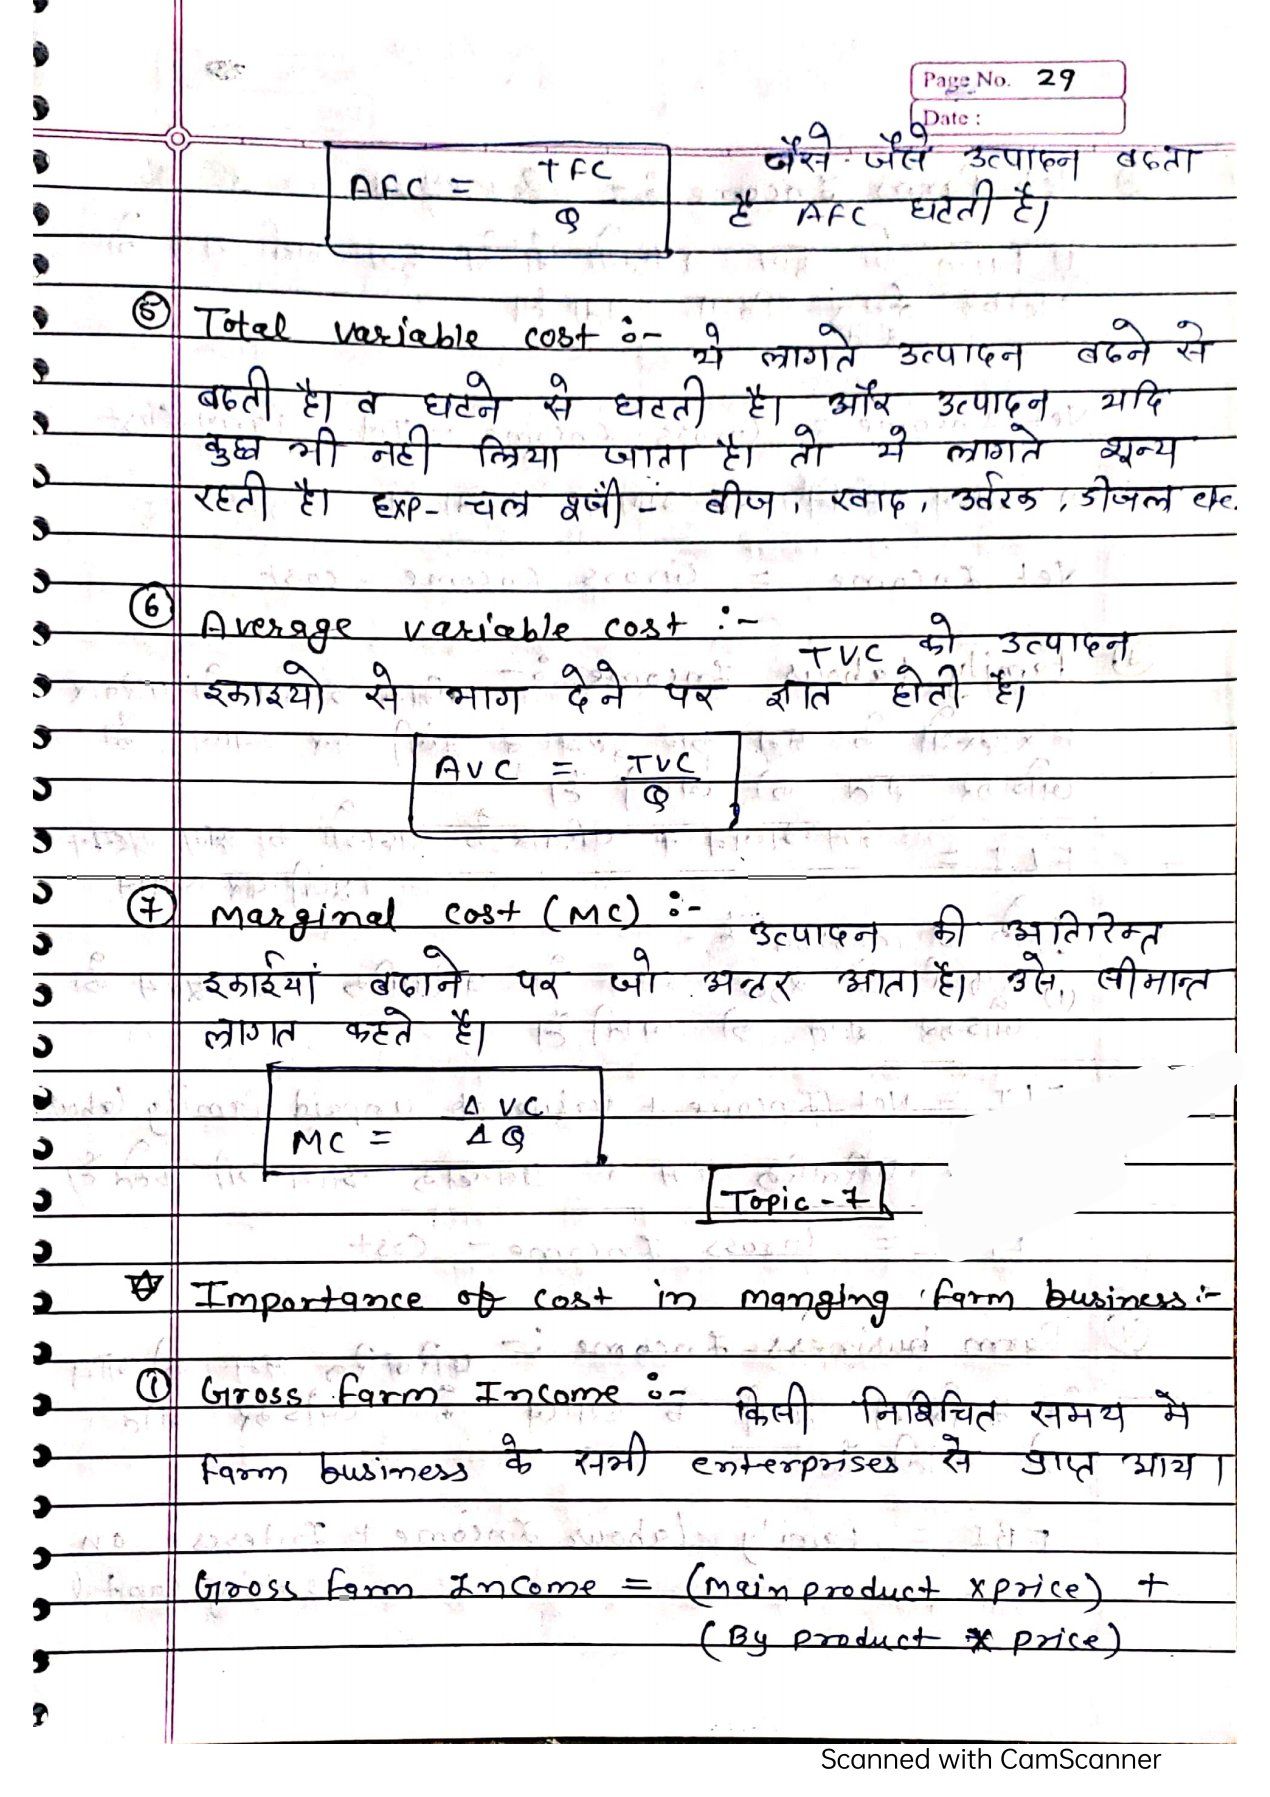 Page No. 29
Date :
AFC = TFC / Q
जैसे-जैसे उत्पादन बढता
है AFC घटती है।
⑤ Total variable cost :- ये लागते उत्पादन बढने से
बढती है। व घटने से घटती है। और उत्पादन यदि
कुछ भी नही लिया जाता है। तो ये लागते शून्य
रहती है। Exp- चल पूंजी - बीज, खाद, उर्वरक, डीजल etc.
⑥ Average variable cost :- TVC को उत्पादन
इकाइयो से भाग देने पर ज्ञात होती है।
AVC = TVC / Q
⑦ Marginal cost (MC) :- उत्पादन की अतिरिक्त
इकाईयां बढाने पर जो अन्तर आता है। उसे सीमान्त
लागत कहते है।
MC = Δ VC / Δ Q
Topic - 7
☆ Importance of cost in manging farm business :-
① Gross farm Income :- किसी निश्चित समय मे
farm business के सभी enterprises से प्राप्त आय।
Gross farm Income = (Main product x price) +
(By product x price)
Scanned with CamScanner